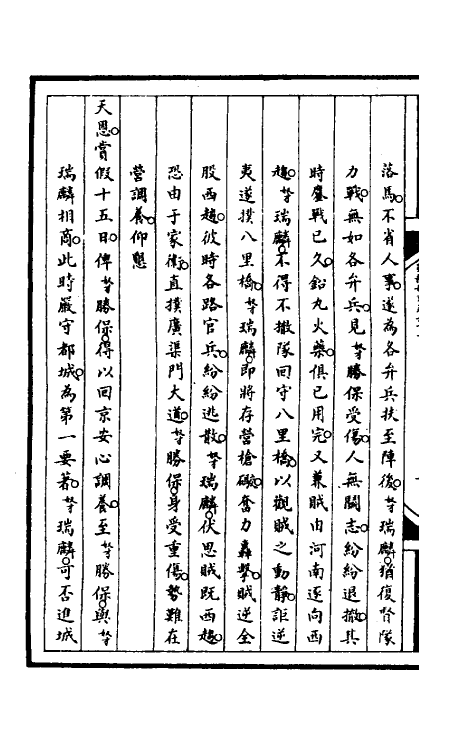 落馬不省人事遂為各弁兵扶至陣後。奴才瑞麟猶復督隊
力戰無如各弁兵見奴才勝保受傷人無鬬志紛紛退撤其
時鏖戰已久鉛丸火藥俱已用完又兼賊由河南逐向西
趨奴才瑞麟不得不撤隊回守八里橋以觀賊之動靜詎逆
夷遂撲八里橋奴才瑞麟即將存營槍礮奮力轟擊賊逆全
股西趨彼時各路官兵紛紛逃散奴才瑞麟伏思賊既西趨
恐由于家衛直撲廣渠門大道奴才勝保身受重傷勢難在
營調養仰懇
天恩賞假十五日俾奴才勝保得以回京安心調養至奴才勝保與奴才
瑞麟相商此時嚴守都城為第一要著奴才瑞麟可否進城